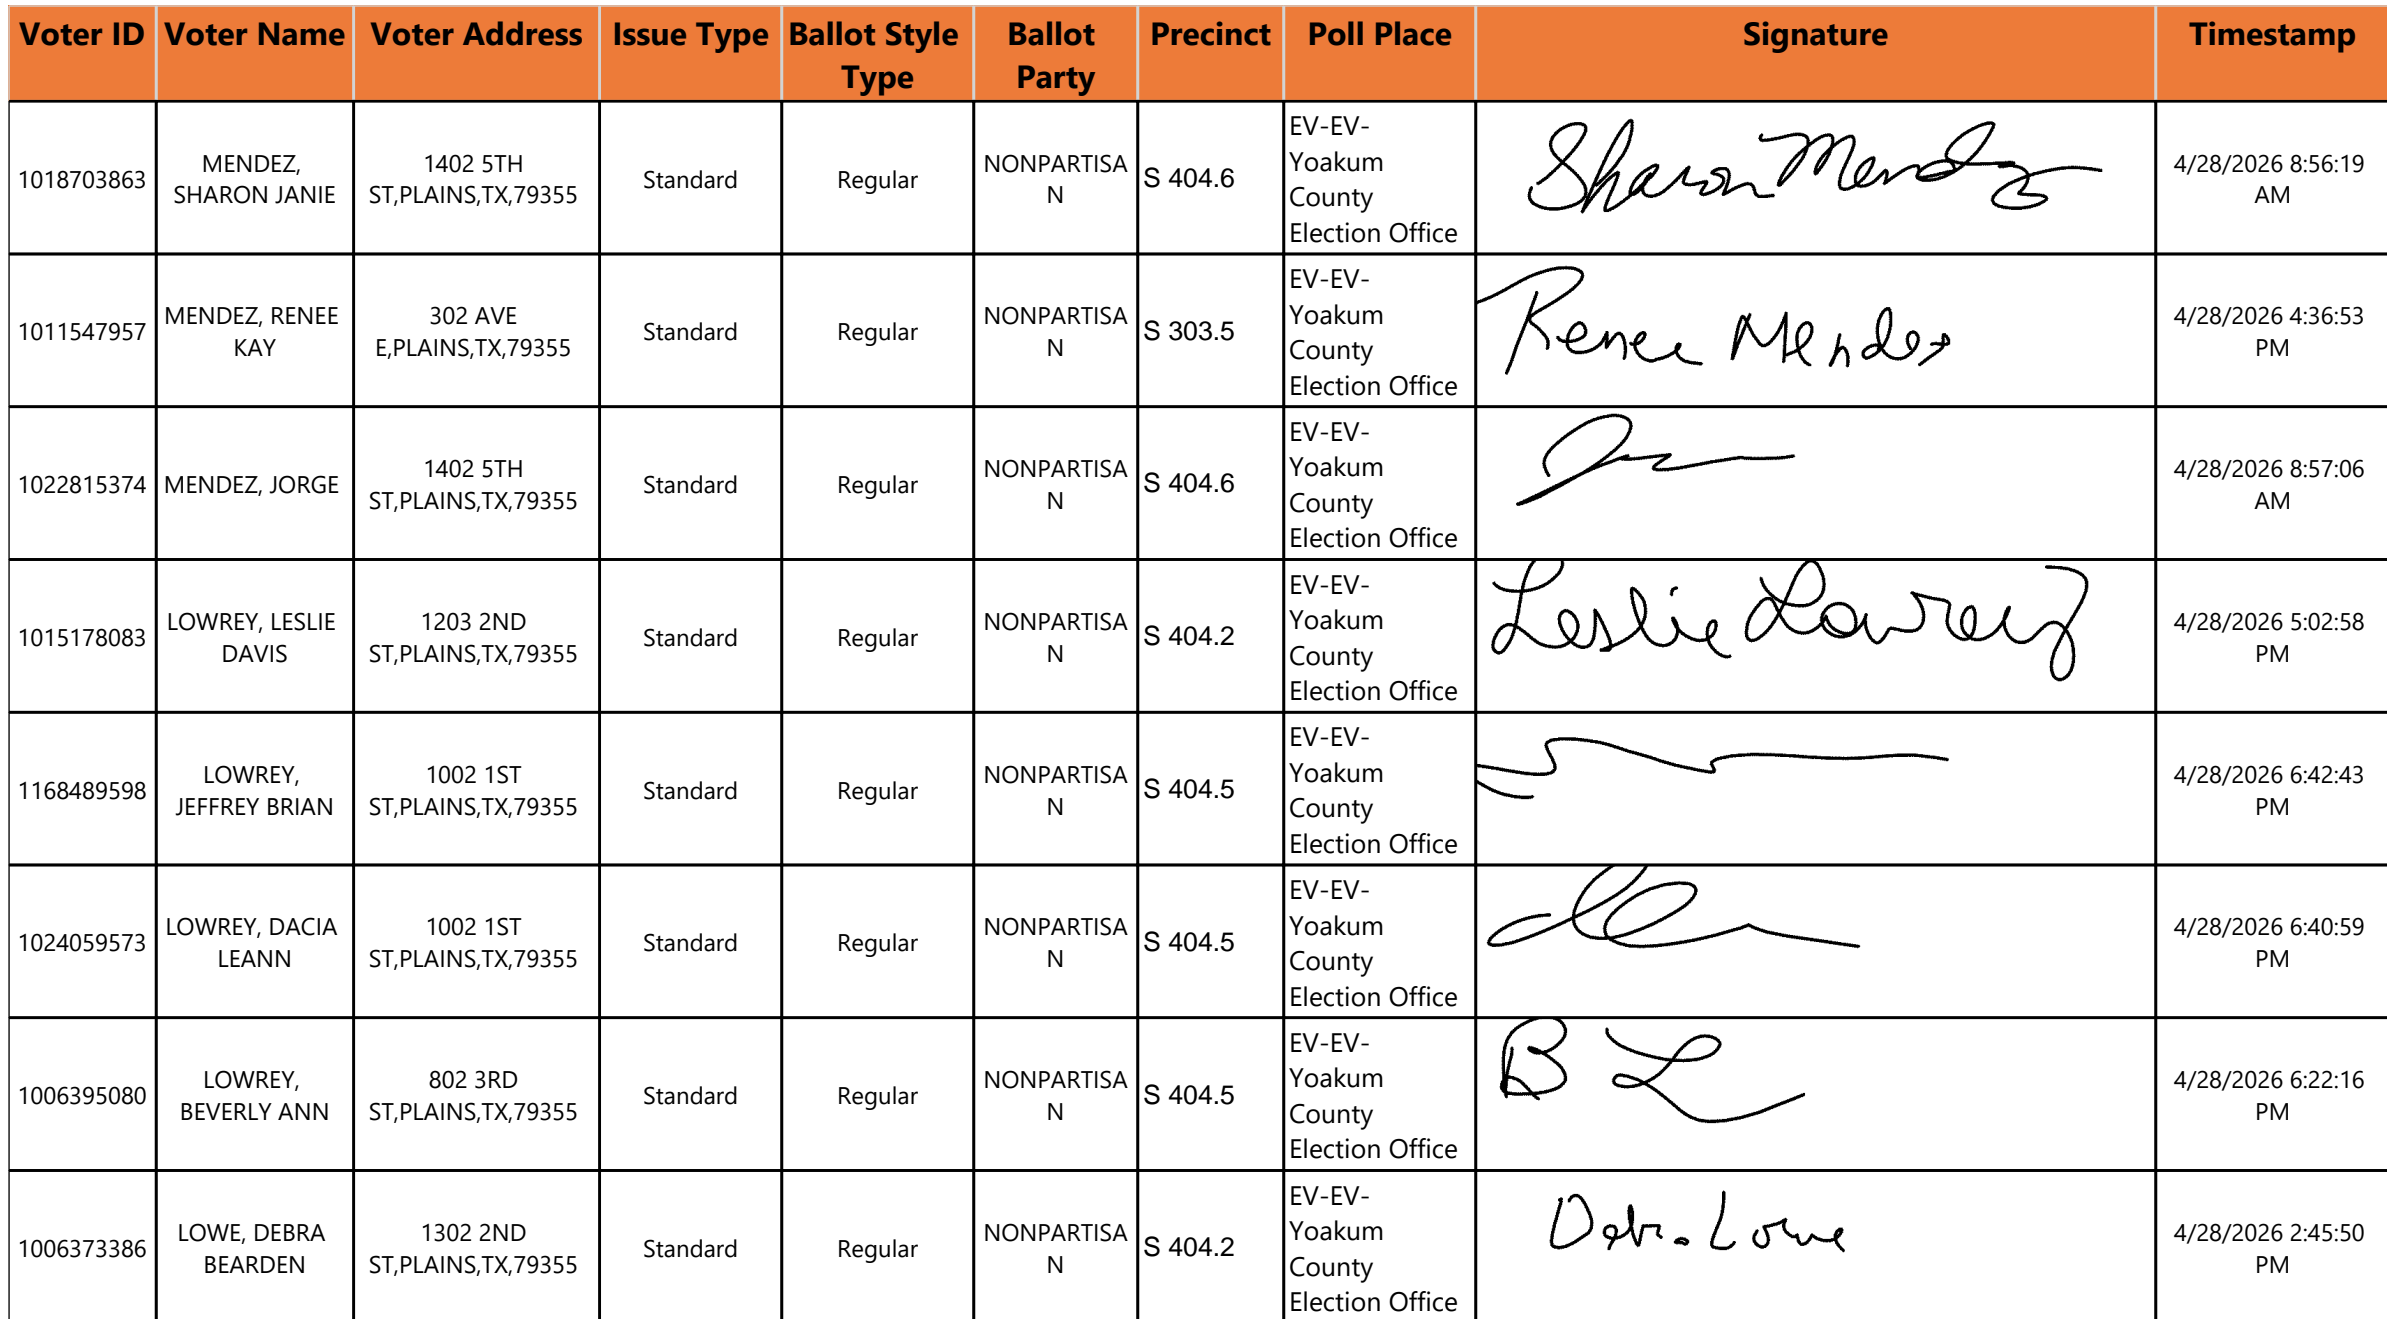 Voter ID Voter Name Voter Address Issue Type Ballot Style Type Ballot Party Precinct Poll Place Signature Timestamp
1018703863 MENDEZ, SHARON JANIE 1402 5TH ST,PLAINS,TX,79355 Standard Regular NONPARTISAN S 404.6 EV-EV-Yoakum County Election Office Sharon Mendez 4/28/2026 8:56:19 AM
1011547957 MENDEZ, RENEE KAY 302 AVE E,PLAINS,TX,79355 Standard Regular NONPARTISAN S 303.5 EV-EV-Yoakum County Election Office Renee Mendez 4/28/2026 4:36:53 PM
1022815374 MENDEZ, JORGE 1402 5TH ST,PLAINS,TX,79355 Standard Regular NONPARTISAN S 404.6 EV-EV-Yoakum County Election Office 4/28/2026 8:57:06 AM
1015178083 LOWREY, LESLIE DAVIS 1203 2ND ST,PLAINS,TX,79355 Standard Regular NONPARTISAN S 404.2 EV-EV-Yoakum County Election Office Leslie Lowrey 4/28/2026 5:02:58 PM
1168489598 LOWREY, JEFFREY BRIAN 1002 1ST ST,PLAINS,TX,79355 Standard Regular NONPARTISAN S 404.5 EV-EV-Yoakum County Election Office 4/28/2026 6:42:43 PM
1024059573 LOWREY, DACIA LEANN 1002 1ST ST,PLAINS,TX,79355 Standard Regular NONPARTISAN S 404.5 EV-EV-Yoakum County Election Office 4/28/2026 6:40:59 PM
1006395080 LOWREY, BEVERLY ANN 802 3RD ST,PLAINS,TX,79355 Standard Regular NONPARTISAN S 404.5 EV-EV-Yoakum County Election Office B L 4/28/2026 6:22:16 PM
1006373386 LOWE, DEBRA BEARDEN 1302 2ND ST,PLAINS,TX,79355 Standard Regular NONPARTISAN S 404.2 EV-EV-Yoakum County Election Office Debra Lowe 4/28/2026 2:45:50 PM